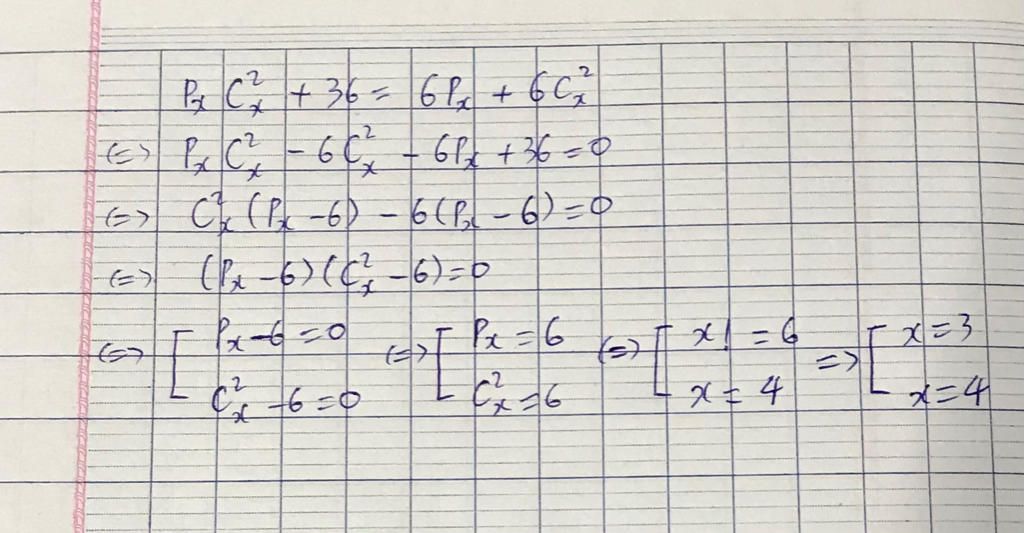 Pₓ Cₓ² + 36 = 6Pₓ + 6Cₓ²
<=> Pₓ Cₓ² - 6Cₓ² - 6Pₓ + 36 = 0
<=> Cₓ² (Pₓ - 6) - 6(Pₓ - 6) = 0
<=> (Pₓ - 6)(Cₓ² - 6) = 0
<=> [ Pₓ - 6 = 0 <=> [ Pₓ = 6 <=> [ x! = 6 => [ x = 3
Cₓ² - 6 = 0 Cₓ² = 6 x = 4 x = 4